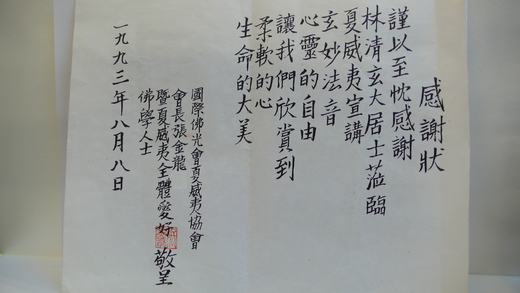 感謝狀
謹以至忱感謝
林清玄大居士蒞臨
夏威夷宣講
玄妙法音
心靈的自由
讓我們欣賞到
柔軟的心
生命的大美
國際佛光會夏威夷協會
會長張金龍
暨夏威夷全體愛好
佛學人士
敬呈
一九九三年八月八日